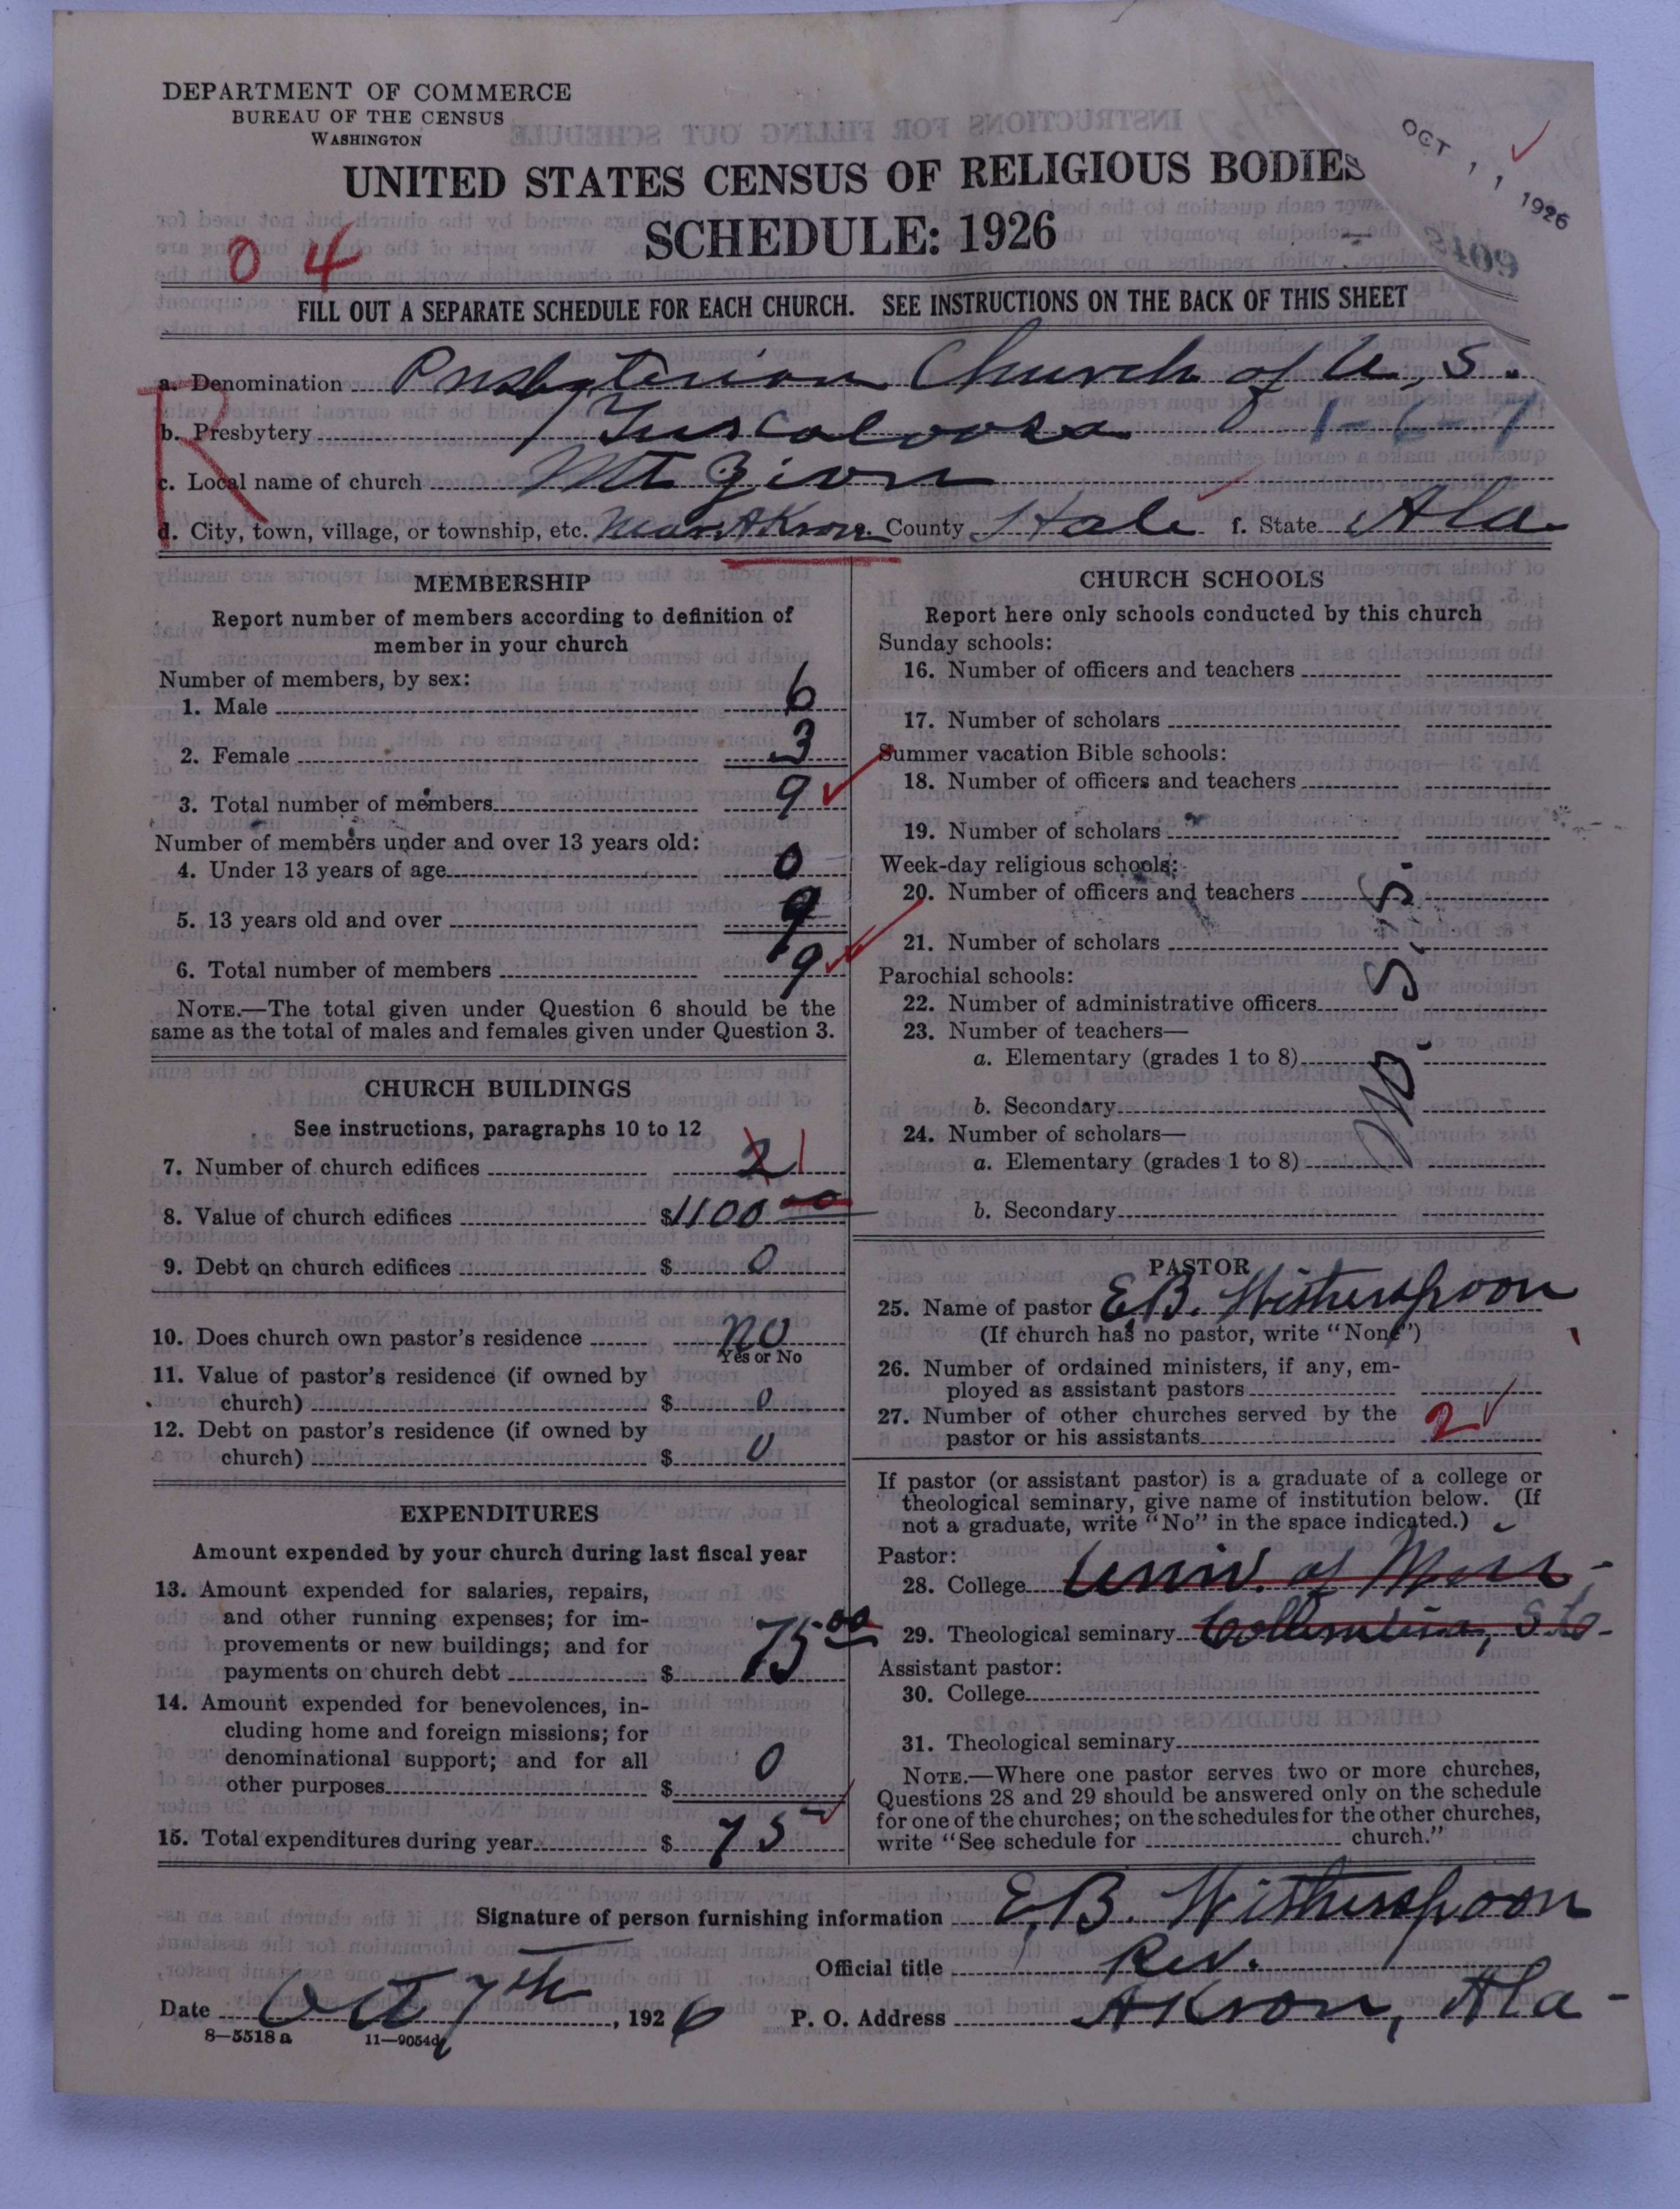 DEPARTMENT OF COMMERCE
BUREAU OF THE CENSUS
WASHINGTON
OCT 11 1926
UNITED STATES CENSUS OF RELIGIOUS BODIES
SCHEDULE: 1926
0 4
FILL OUT A SEPARATE SCHEDULE FOR EACH CHURCH. SEE INSTRUCTIONS ON THE BACK OF THIS SHEET
R
a. Denomination Presbyterian Church of U. S.
b. Presbytery Tuscaloosa 1-6-7
c. Local name of church Mt Zion
d. City, town, village, or township, etc. Near Akron. County Hale f. State Ala
MEMBERSHIP
Report number of members according to definition of
member in your church
Number of members, by sex:
1. Male 6
2. Female 3
3. Total number of members 9
Number of members under and over 13 years old:
4. Under 13 years of age 0
5. 13 years old and over 9
6. Total number of members 9
NOTE.—The total given under Question 6 should be the
same as the total of males and females given under Question 3.
CHURCH BUILDINGS
See instructions, paragraphs 10 to 12
7. Number of church edifices 2 1
8. Value of church edifices $1100 00
9. Debt on church edifices $ 0
10. Does church own pastor's residence no
Yes or No
11. Value of pastor's residence (if owned by
church) $ 0
12. Debt on pastor's residence (if owned by
church) $ 0
EXPENDITURES
Amount expended by your church during last fiscal year
13. Amount expended for salaries, repairs,
and other running expenses; for im-
provements or new buildings; and for
payments on church debt $ 75 00
14. Amount expended for benevolences, in-
cluding home and foreign missions; for
denominational support; and for all
other purposes $ 0
15. Total expenditures during year $ 75
CHURCH SCHOOLS
Report here only schools conducted by this church
Sunday schools:
16. Number of officers and teachers
17. Number of scholars
Summer vacation Bible schools:
18. Number of officers and teachers
19. Number of scholars
Week-day religious schools:
20. Number of officers and teachers
21. Number of scholars
Parochial schools:
22. Number of administrative officers
23. Number of teachers—
a. Elementary (grades 1 to 8)
b. Secondary
24. Number of scholars—
a. Elementary (grades 1 to 8)
b. Secondary
No. S.S.
PASTOR
25. Name of pastor E.B. Witherspoon
(If church has no pastor, write "None")
26. Number of ordained ministers, if any, em-
ployed as assistant pastors
27. Number of other churches served by the
pastor or his assistants 2
If pastor (or assistant pastor) is a graduate of a college or
theological seminary, give name of institution below. (If
not a graduate, write "No" in the space indicated.)
Pastor:
28. College Univ. of
29. Theological seminary
Assistant pastor:
30. College
31. Theological seminary
NOTE.—Where one pastor serves two or more churches,
Questions 28 and 29 should be answered only on the schedule
for one of the churches; on the schedules for the other churches,
write "See schedule for church."
Signature of person furnishing information E.B. Witherspoon
Official title Rev.
Date Oct 7th, 1926 P. O. Address Akron, Ala-
8—5518 a 11—9054